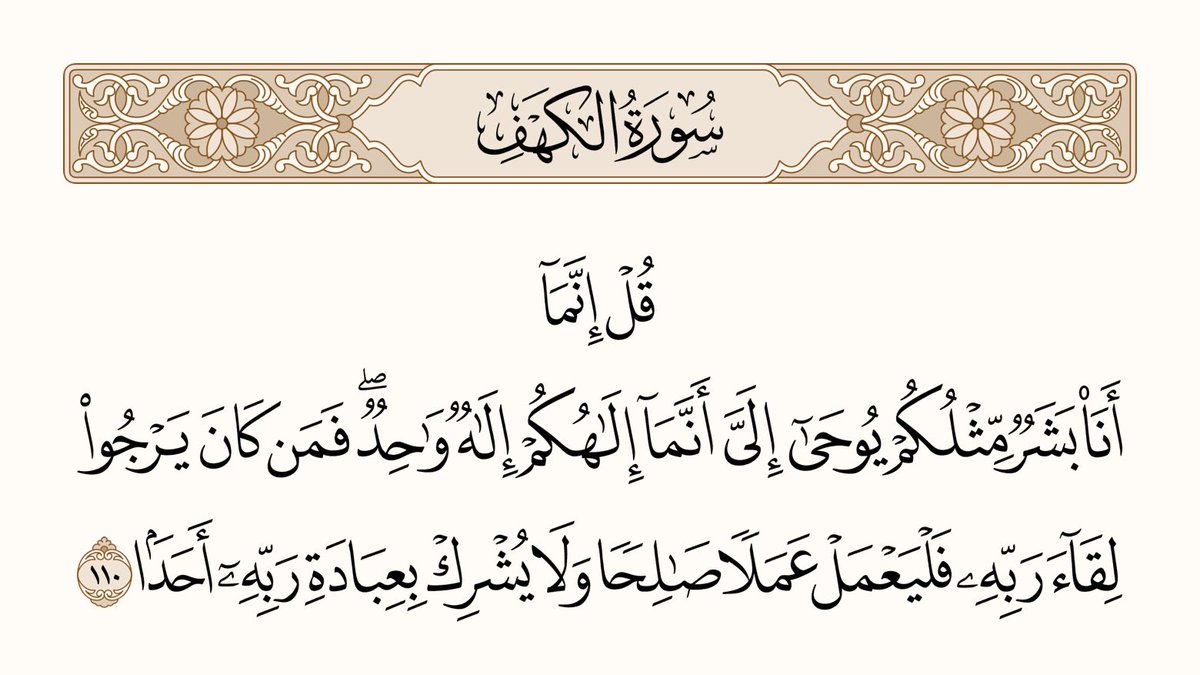 سُورَةُ الكَهْفِ
قُلْ إِنَّمَآ
أَنَا۠ بَشَرٌ مِّثْلُكُمْ يُوحَىٰٓ إِلَىَّ أَنَّمَآ إِلَـٰهُكُمْ إِلَـٰهٌ وَٰحِدٌ ۖ فَمَن كَانَ يَرْجُوا۟
لِقَآءَ رَبِّهِۦ فَلْيَعْمَلْ عَمَلًا صَـٰلِحًا وَلَا يُشْرِكْ بِعِبَادَةِ رَبِّهِۦٓ أَحَدًۢا ١١٠